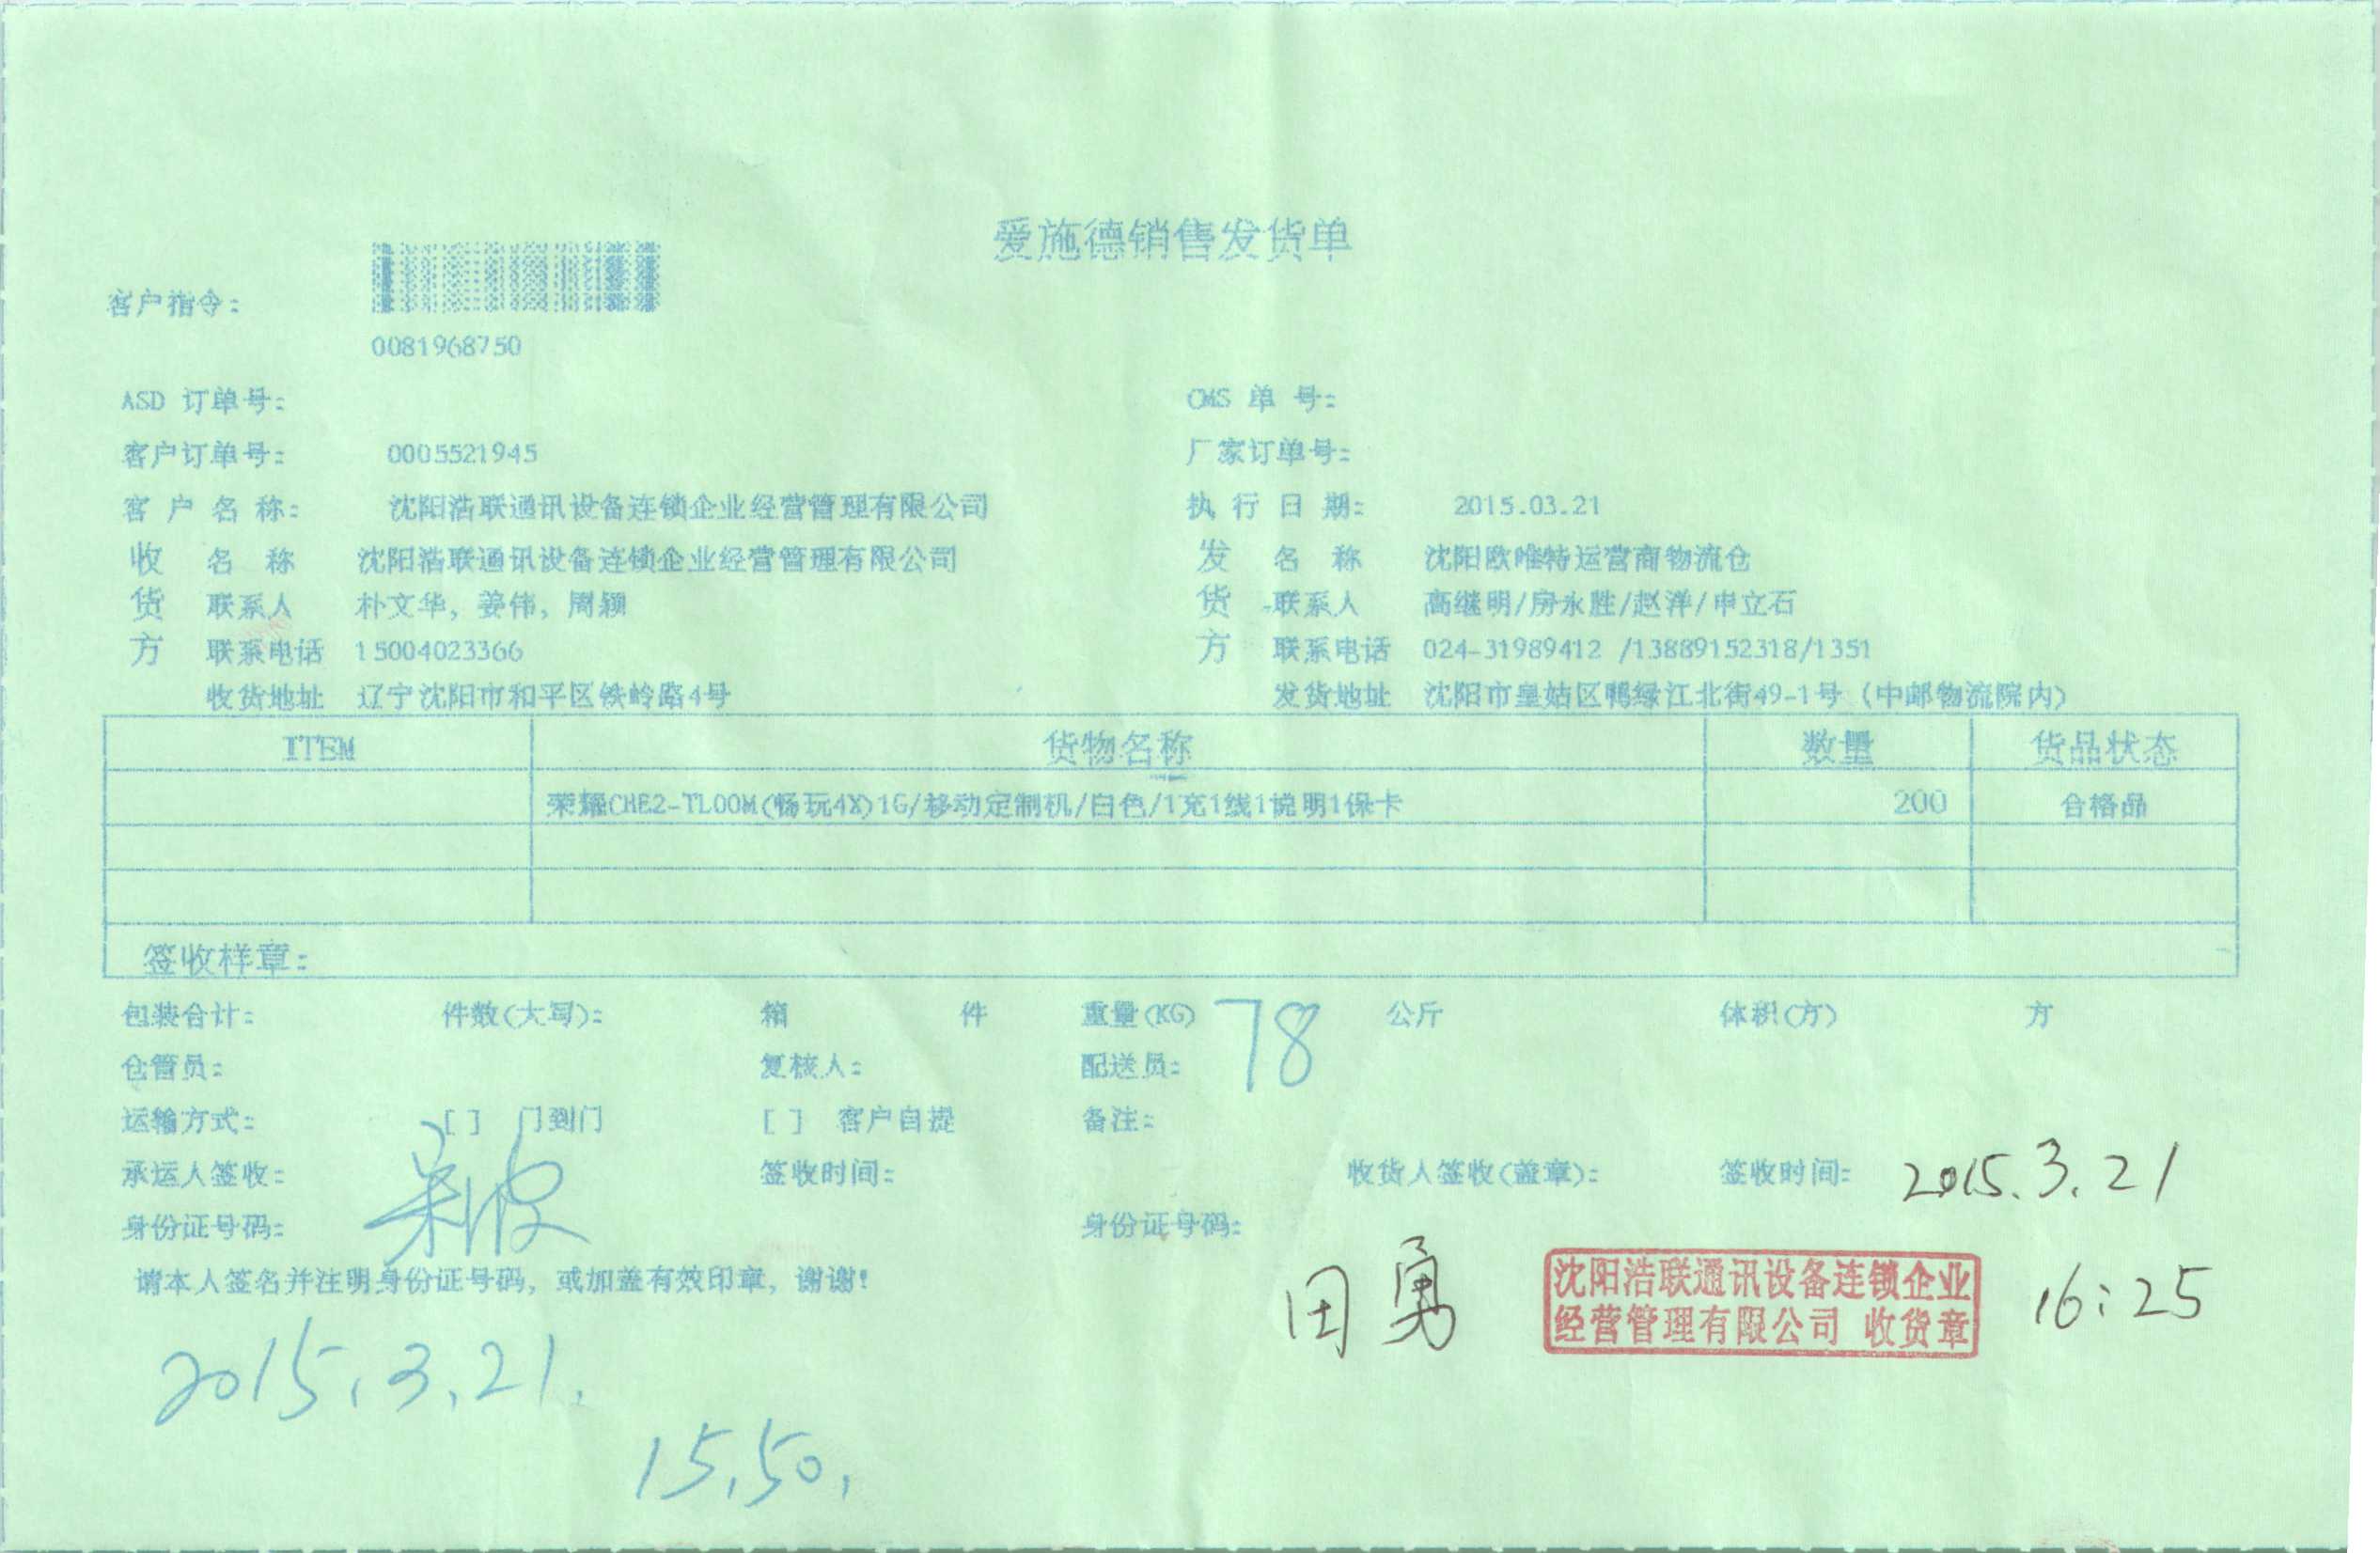 爱施德销售发货单
客户指令:
0081968750
ASD 订单号: CMS 单 号:
客户订单号: 0005521945 厂家订单号:
客 户 名 称: 沈阳浩联通讯设备连锁企业经营管理有限公司 执 行 日 期: 2015.03.21
收 名 称 沈阳浩联通讯设备连锁企业经营管理有限公司 发 名 称 沈阳欧唯特运营商物流仓
货 联系人 朴文华, 姜伟, 周颖 货 联系人 高继明/房永胜/赵洋/申立石
方 联系电话 15004023366 方 联系电话 024-31989412 /13889152318/1351
收货地址 辽宁沈阳市和平区铁岭路4号 发货地址 沈阳市皇姑区鸭绿江北街49-1号 (中邮物流院内)
ITEM 货物名称 数量 货品状态
荣耀CHE2-TL00M(畅玩4X)1G/移动定制机/白色/1充1线1说明1保卡 200 合格品
签收样章:
包装合计: 件数(大写): 箱 件 重量(KG) 78 公斤 体积(方) 方
仓管员: 复核人: 配送员:
运输方式: [ ] 门到门 [ ] 客户自提 备注:
承运人签收: 签收时间: 收货人签收(盖章): 签收时间: 2015.3.21
身份证号码: 身份证号码:
请本人签名并注明身份证号码, 或加盖有效印章, 谢谢!
田勇 沈阳浩联通讯设备连锁企业 16:25
经营管理有限公司 收货章
2015.3.21.
15.50.